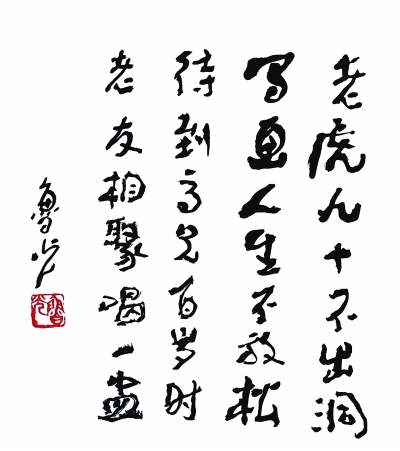 老虎九十不出洞
写画人生不放松
待到高兄百岁时
老友相聚喝一盅
魯光